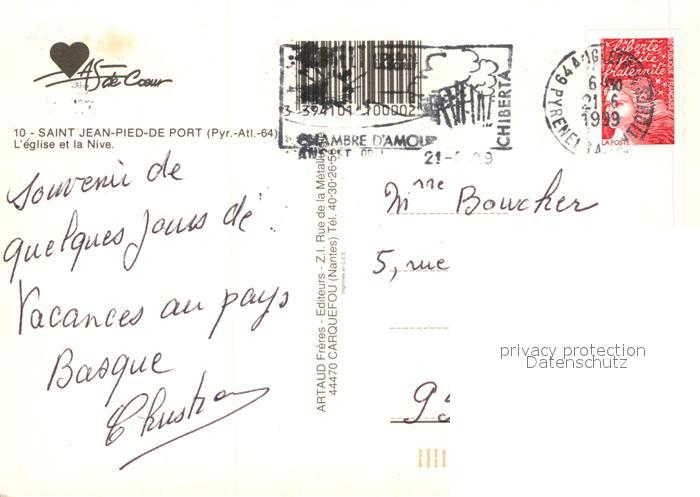 AS de Cœur
10 - SAINT JEAN-PIED-DE PORT (Pyr.-Atl.-64)
L'église et la Nive.
Souvenir de
quelques jours de
Vacances au pays
Basque
ARTAUD Frères - Editeurs - Z.I. Rue de la Métallurgie
44470 CARQUEFOU (Nantes) Tél. 40-30-26-56
3 394104 100002
CHAMBRE D'AMOUR
CHIBERTA
64 ANGLET
21-6
1999
liberté
égalité
fraternité
RÉPUBLIQUE FRANÇAISE
LA POSTE
Mme Boucher
5, rue
privacy protection
Datenschutz